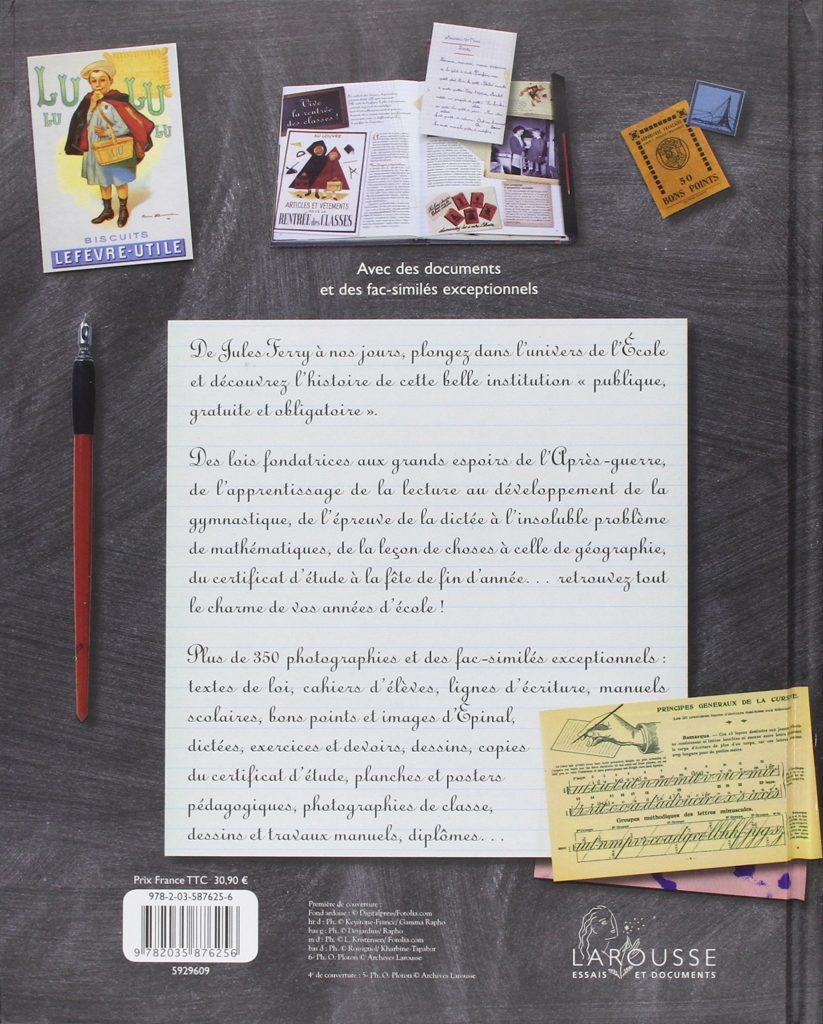 LU LU
LU LU
BISCUITS
LEFÈVRE-UTILE
Vive
la rentrée
des classes !
AU LOUVRE
ARTICLES ET VÊTEMENTS
POUR LA
RENTRÉE des CLASSES
RÉPUBLIQUE FRANÇAISE
50
BONS POINTS
Avec des documents
et des fac-similés exceptionnels
De Jules Ferry à nos jours, plongez dans l'univers de l'École
et découvrez l'histoire de cette belle institution « publique,
gratuite et obligatoire ».
Des lois fondatrices aux grands espoirs de l'Après-guerre,
de l'apprentissage de la lecture au développement de la
gymnastique, de l'épreuve de la dictée à l'insoluble problème
de mathématiques, de la leçon de choses à celle de géographie,
du certificat d'étude à la fête de fin d'année... retrouvez tout
le charme de vos années d'école !
Plus de 350 photographies et des fac-similés exceptionnels :
textes de loi, cahiers d'élèves, lignes d'écriture, manuels
scolaires, bons points et images d'Épinal,
dictées, exercices et devoirs, dessins, copies
du certificat d'étude, planches et posters
pédagogiques, photographies de classe,
dessins et travaux manuels, diplômes...
PRINCIPES GÉNÉRAUX DE LA CURSIVE
Remarque. — Ces
Groupes méthodiques des lettres minuscules.
Prix France TTC 30,90 €
978-2-03-587625-6
9 782035 876256
5929609
Première de couverture :
Fond ardoise : © Digitalpress/Fotolia.com
ht d : Ph. © Keystone-France/ Gamma Rapho
bas g : Ph. © Desjardins/ Rapho
m d : Ph. © L. Kristensen/ Fotolia.com
bas d : Ph. © Rossignol/ Kharbine-Tapabor
6- Ph. O. Ploton © Archives Larousse
4e de couverture : 5- Ph. O. Ploton © Archives Larousse
LAROUSSE
ESSAIS ET DOCUMENTS